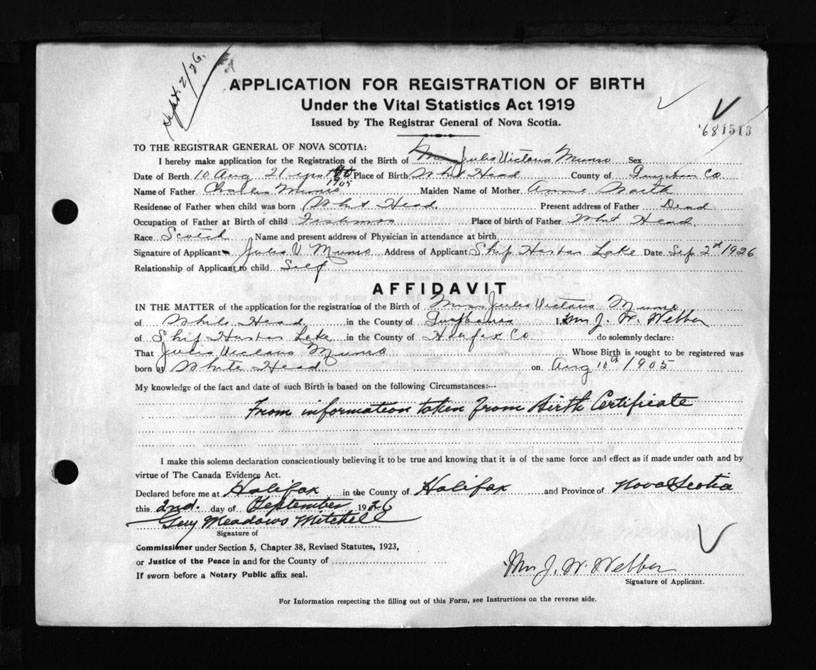 Sept. 2/26.
APPLICATION FOR REGISTRATION OF BIRTH
Under the Vital Statistics Act 1919
Issued by The Registrar General of Nova Scotia.
681513
TO THE REGISTRAR GENERAL OF NOVA SCOTIA:
I hereby make application for the Registration of the Birth of Victoria Munro Sex
Date of Berth 10 Aug 21 1905 Place of Birth Head County of Co
Name of Father Charles Munro Maiden Name of Mother Annie
Residence of Father when child was born Head Present address of Father Dead
Occupation of Father at Birth of child Place of birth of Father Head
Race Scotch Name and present address of Physician in attendance at birth,
Signature of Applicant V Munro Address of Applicant Ship Harbor Lake Date Sep 2nd 1926
Relationship of Applicant to child Self
AFFIDAVIT
IN THE MATTER of the application for the registration of the Birth of Victoria Munro
of White Head in the County of I, Mrs J. W. Webber
of Ship Harbor Lake in the County of Halifax Co do solemnly declare:
That Victoria Munro Whose Birth is sought to be registered was
born at White Head on Aug 10th 1905
My knowledge of the fact and date of such Birth is based on the following Circumstances:—
From information taken from Birth Certificate
I make this solemn declaration conscientiously believing it to be true and knowing that it is of the same force and effect as if made under oath and by
virtue of The Canada Evidence Act.
Declared before me at Halifax in the County of Halifax and Province of Nova Scotia
this 2nd. day of September 1926
Guy Meadows Mitchell
Signature of
Commissioner under Section 5, Chapter 38, Revised Statutes, 1923,
or Justice of the Peace in and for the County of
If sworn before a Notary Public affix seal.
Mrs J. W. Webber
Signature of Applicant.
For Information respecting the filling out of this Form, see Instructions on the reverse side.